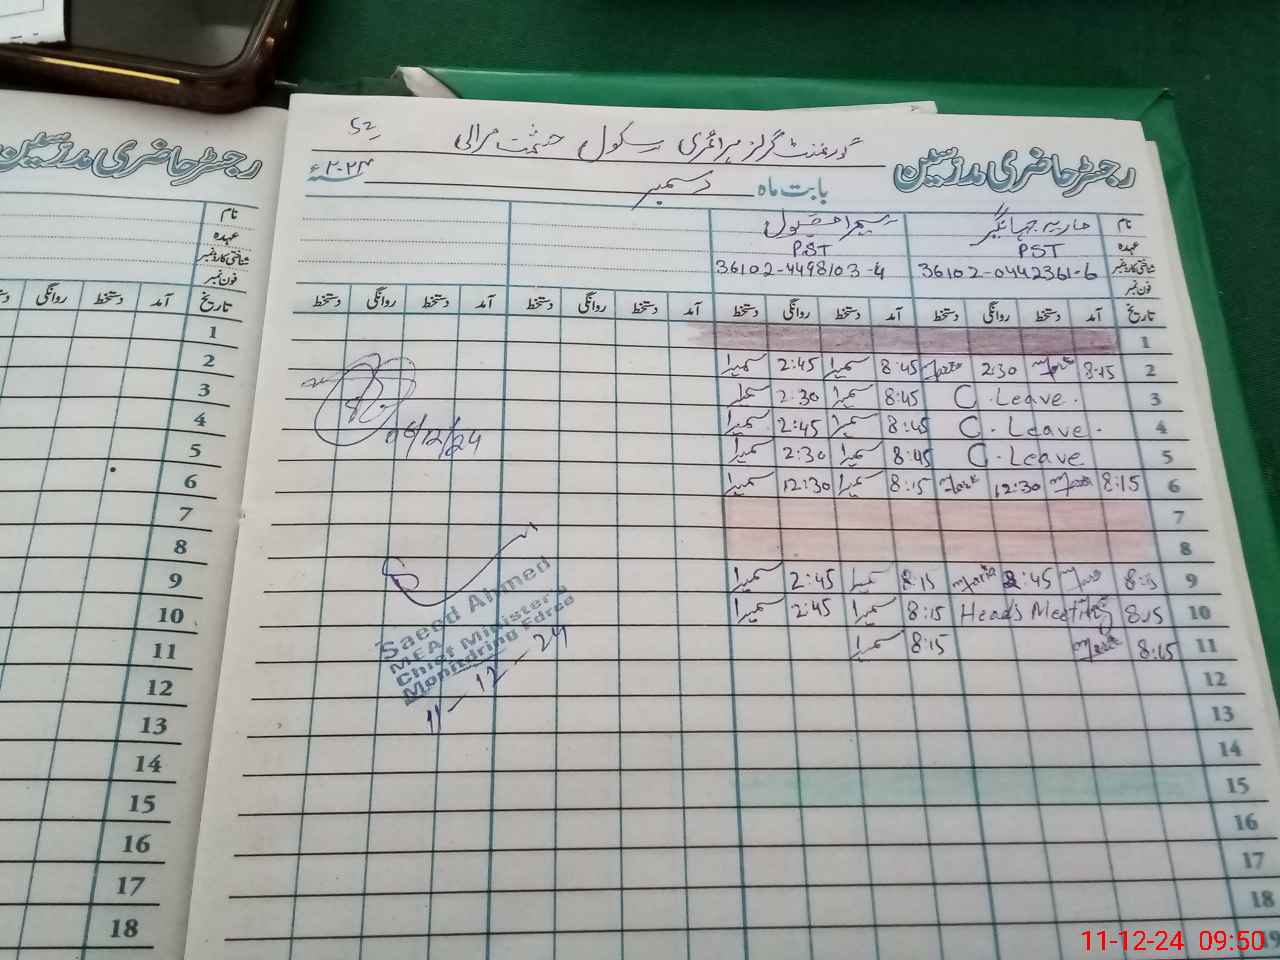 رجسٹر حاضری مدرسین
نام
عہدہ
شناختی کارڈ نمبر
فون نمبر
تاریخ آمد دستخط روانگی
1
2
3
4
5
6
7
8
9
10
11
12
13
14
15
16
17
18
رجسٹر حاضری مدرسین گورنمنٹ گرلز پرائمری سکول حشمت مرالی
بابت ماہ دسمبر ۲۰۲۴ء
نام ماریہ جہانگیر سمیرا مقبول
عہدہ PST PST
شناختی کارڈ نمبر 36102-0442361-6 36102-4498103-4
فون نمبر
تاریخ آمد دستخط روانگی دستخط آمد دستخط روانگی دستخط آمد دستخط روانگی دستخط آمد دستخط روانگی دستخط
1
2 8:15 Maria 2:30 Maria 8:45 سمیرا 2:45 سمیرا
3 C. Leave. 8:45 سمیرا 2:30 سمیرا
4 C. Leave. 8:45 سمیرا 2:45 سمیرا
5 C. Leave 8:45 سمیرا 2:30 سمیرا
6 8:15 Maria 12:30 Maria 8:15 سمیرا 12:30 سمیرا
7
8
9 8:15 Maria 2:45 Maria 8:15 سمیرا 2:45 سمیرا
10 8:15 Head's Meeting 8:15 سمیرا 2:45 سمیرا
11 8:15 Maria 8:15 سمیرا
12
13
14
15
16
17
18
19
06/12/24
Saeed Ahmed
MEA
Chief Minister's
Monitoring Force
11-12-24
11-12-24 09:50